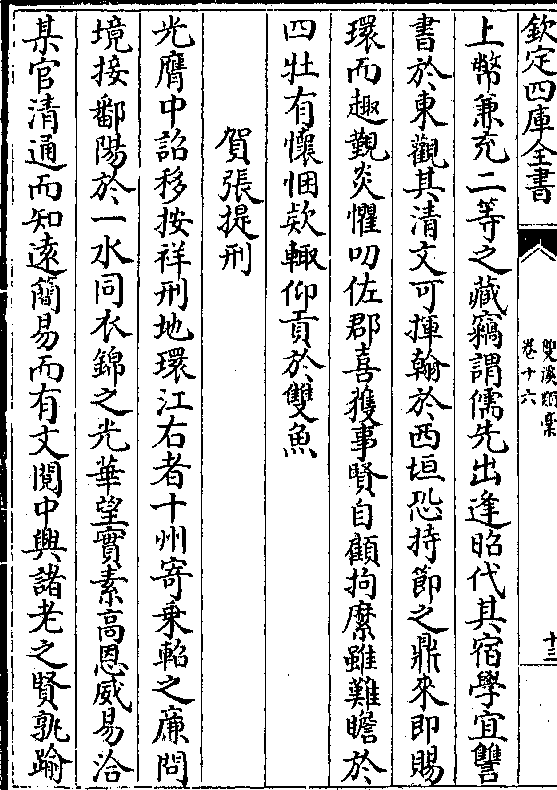 欽定四庫全書
雙溪類稾
卷十六
十三
上幣兼充二等之藏竊謂儒先出逢昭代其宿學宜讐
書於東觀其清文可揮翰於西垣恐持節之鼎來即賜
環而趣覲炎懼叨佐郡喜獲事賢自顧拘縻雖難瞻於
四牡有懷悃欵輙仰貢於雙魚
賀張提刑
光膺中詔移按祥刑地環江右者十州寄乘軺之廉問
境接鄱陽於一水同衣錦之光華望實素高恩威易洽
某官清通而知逺簡易而有文閱中興諸老之賢孰踰